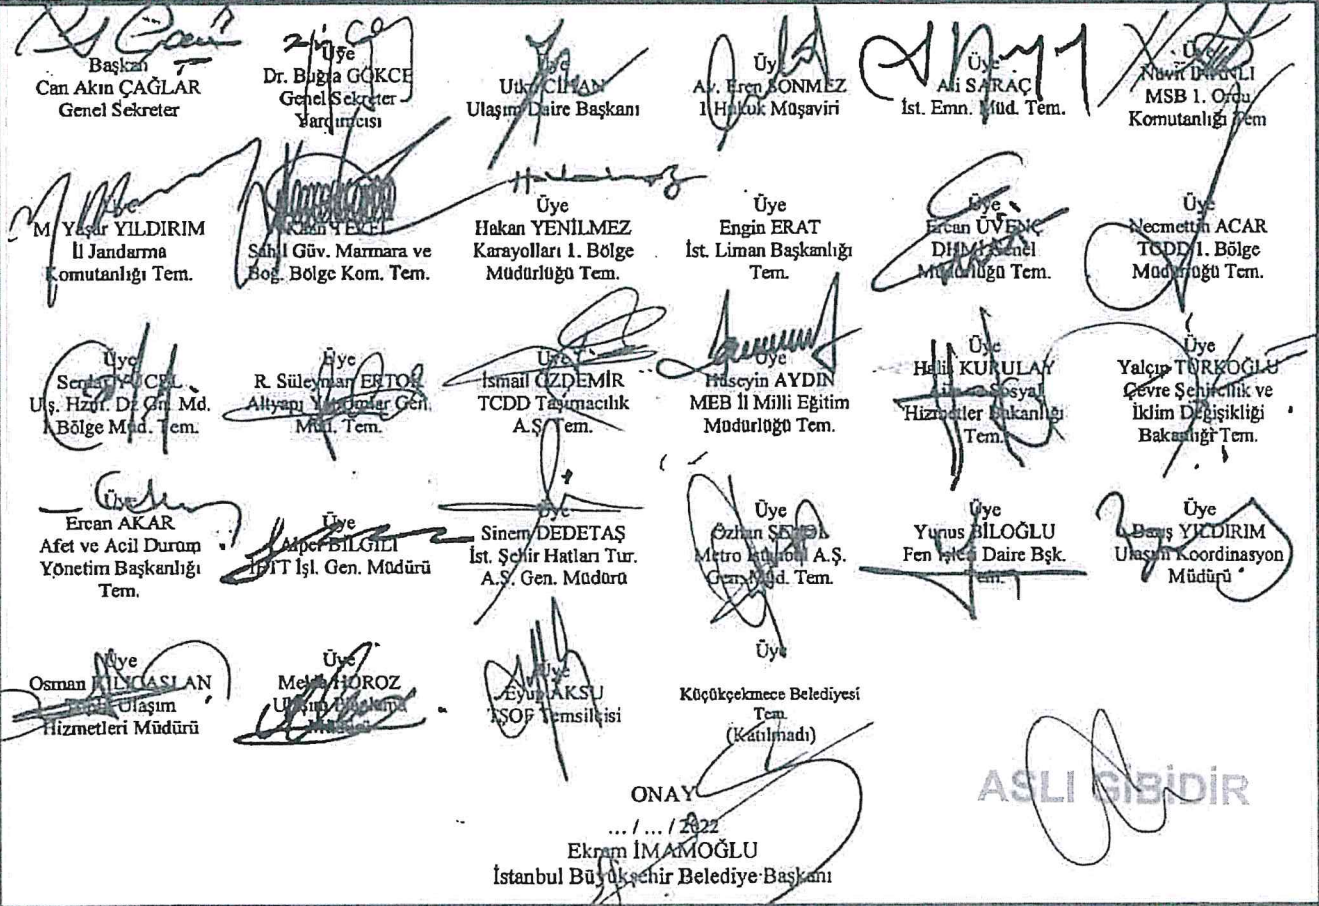 Başkan
Can Akın ÇAĞLAR
Genel Sekreter
Üye
Dr. Buğra GÖKCE
Genel Sekreter
Yardımcısı
Utku CİHAN
Ulaşım Daire Başkanı
Üye
Av. Eren SÖNMEZ
1. Hukuk Müşaviri
Üye
Ali SARAÇ
İst. Emn. Müd. Tem.
Üye
MSB 1. Ordu
Komutanlığı Tem
M. Yaşar YILDIRIM
İl Jandarma
Komutanlığı Tem.
Sahil Güv. Marmara ve
Boğ. Bölge Kom. Tem.
Üye
Hakan YENİLMEZ
Karayolları 1. Bölge
Müdürlüğü Tem.
Üye
Engin ERAT
İst. Liman Başkanlığı
Tem.
Üye
Ercan ÜVENÇ
DHMİ Genel
Müdürlüğü Tem.
Üye
Necmettin ACAR
TCDD 1. Bölge
Müdürlüğü Tem.
Üye
Serdar YÜCEL
Ulş. Hzm. Dz Gn. Md.
1. Bölge Müd. Tem.
Üye
R. Süleyman
Altyapı Yatırımlar Gen.
Müd. Tem.
Üye
İsmail ÖZDEMİR
TCDD Taşımacılık
A.Ş. Tem.
Üye
Hüseyin AYDIN
MEB İl Milli Eğitim
Müdürlüğü Tem.
Üye
Halis KURULAY
Sosyal
Hizmetler Bakanlığı
Tem.
Üye
Yalçın TÜRKOĞLU
Çevre Şehircilik ve
İklim Değişikliği
Bakanlığı Tem.
Üye
Ercan AKAR
Afet ve Acil Durum
Yönetim Başkanlığı
Tem.
Üye
Alper BİLGİLİ
İETT İşl. Gen. Müdürü
Üye
Sinem DEDETAŞ
İst. Şehir Hatları Tur.
A.Ş. Gen. Müdürü
Üye
Özhan
Metro İstanbul A.Ş.
Gen. Müd. Tem.
Üye
Yunus BİLOĞLU
Fen İşleri Daire Bşk.
Tem.
Üye
Barış YILDIRIM
Ulaşım Koordinasyon
Müdürü
Üye
Osman KILIÇASLAN
Toplu Ulaşım
Hizmetleri Müdürü
Üye
HOROZ
Ulaşım Planlama
Müdürü
Üye
Eyüp AKSU
TŞOF Temsilcisi
Üye
Küçükçekmece Belediyesi
Tem.
(Katılmadı)
ONAY
... / ... / 2022
Ekrem İMAMOĞLU
İstanbul Büyükşehir Belediye Başkanı
ASLI GİBİDİR